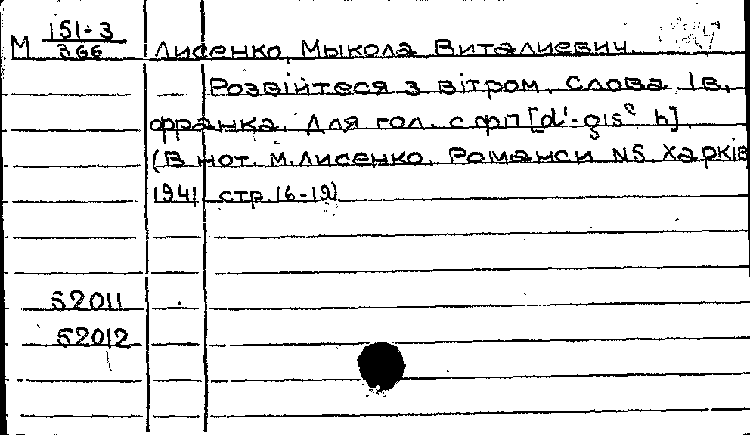 М 151-3
366
Лисенко, Мыкола Виталиевич.
Розвiйтеся з вiтром. Слова Iв.
Франка. Для гол. с фп [d'-gis² h]
(В нот. М. Лисенко. Романси N5 Харкiв
1941 стр. 16-19)
52011
52012